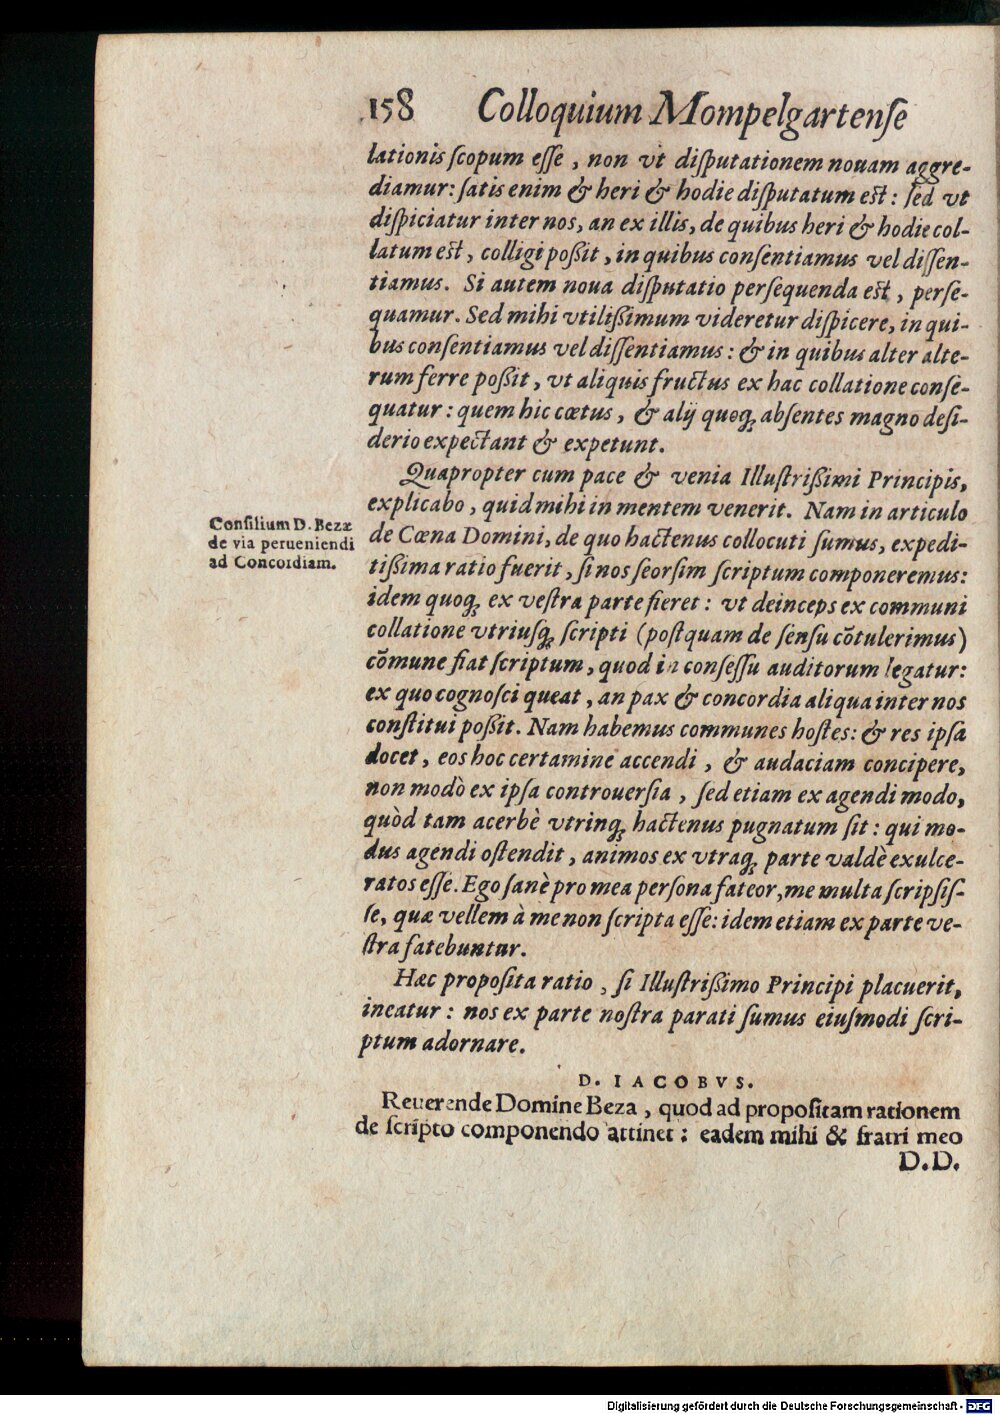 158 Colloquium Mompelgartense
lationis ſcopum eſſe, non vt diſputationem nouam aggre-
diamur: ſatis enim & heri & hodie diſputatum eſt: ſed vt
diſpiciatur inter nos, an ex illis, de quibus heri & hodie col-
latum eſt, colligi poßit, in quibus conſentiamus vel diſſen-
tiamus. Si autem noua diſputatio perſequenda eſt, perſe-
quamur. Sed mihi vtilißimum videretur diſpicere, in qui-
bus conſentiamus vel diſſentiamus: & in quibus alter alte-
rum ferre poßit, vt aliquis fructus ex hac collatione conſe-
quatur: quem hic cœtus, & alij quoq; abſentes magno deſi-
derio expectant & expetunt.
Quapropter cum pace & venia Illuſtrißimi Principis,
explicabo, quid mihi in mentem venerit. Nam in articulo
Conſilium D. Bezæ
de via perueniendi
ad Concordiam.
de Cœna Domini, de quo hactenus collocuti ſumus, expedi-
tißima ratio fuerit, ſi nos ſeorſim ſcriptum componeremus:
idem quoq; ex veſtra parte fieret: vt deinceps ex communi
collatione vtriuſq; ſcripti (poſtquam de ſenſu cõtulerimus)
cõmune fiat ſcriptum, quod in conſeſſu auditorum legatur:
ex quo cognoſci queat, an pax & concordia aliqua inter nos
conſtitui poßit. Nam habemus communes hoſtes: & res ipſa
docet, eos hoc certamine accendi, & audaciam concipere,
non modò ex ipſa controuerſia, ſed etiam ex agendi modo,
quòd tam acerbè vtrinq; hactenus pugnatum ſit: qui mo-
dus agendi oſtendit, animos ex vtraq; parte valdè exulce-
ratos eſſe. Ego ſanè pro mea perſona fateor, me multa ſcripſiſ-
ſe, quæ vellem à me non ſcripta eſſe: idem etiam ex parte ve-
ſtra fatebuntur.
Hæc propoſita ratio, ſi Illuſtrißimo Principi placuerit,
ineatur: nos ex parte noſtra parati ſumus eiuſmodi ſcri-
ptum adornare.
D. IACOBVS.
Reuerende Domine Beza, quod ad propoſitam rationem
de ſcripto componendo attinet: eadem mihi & fratri meo
D.D.
Digitalisierung gefördert durch die Deutsche Forschungsgemeinschaft - DFG